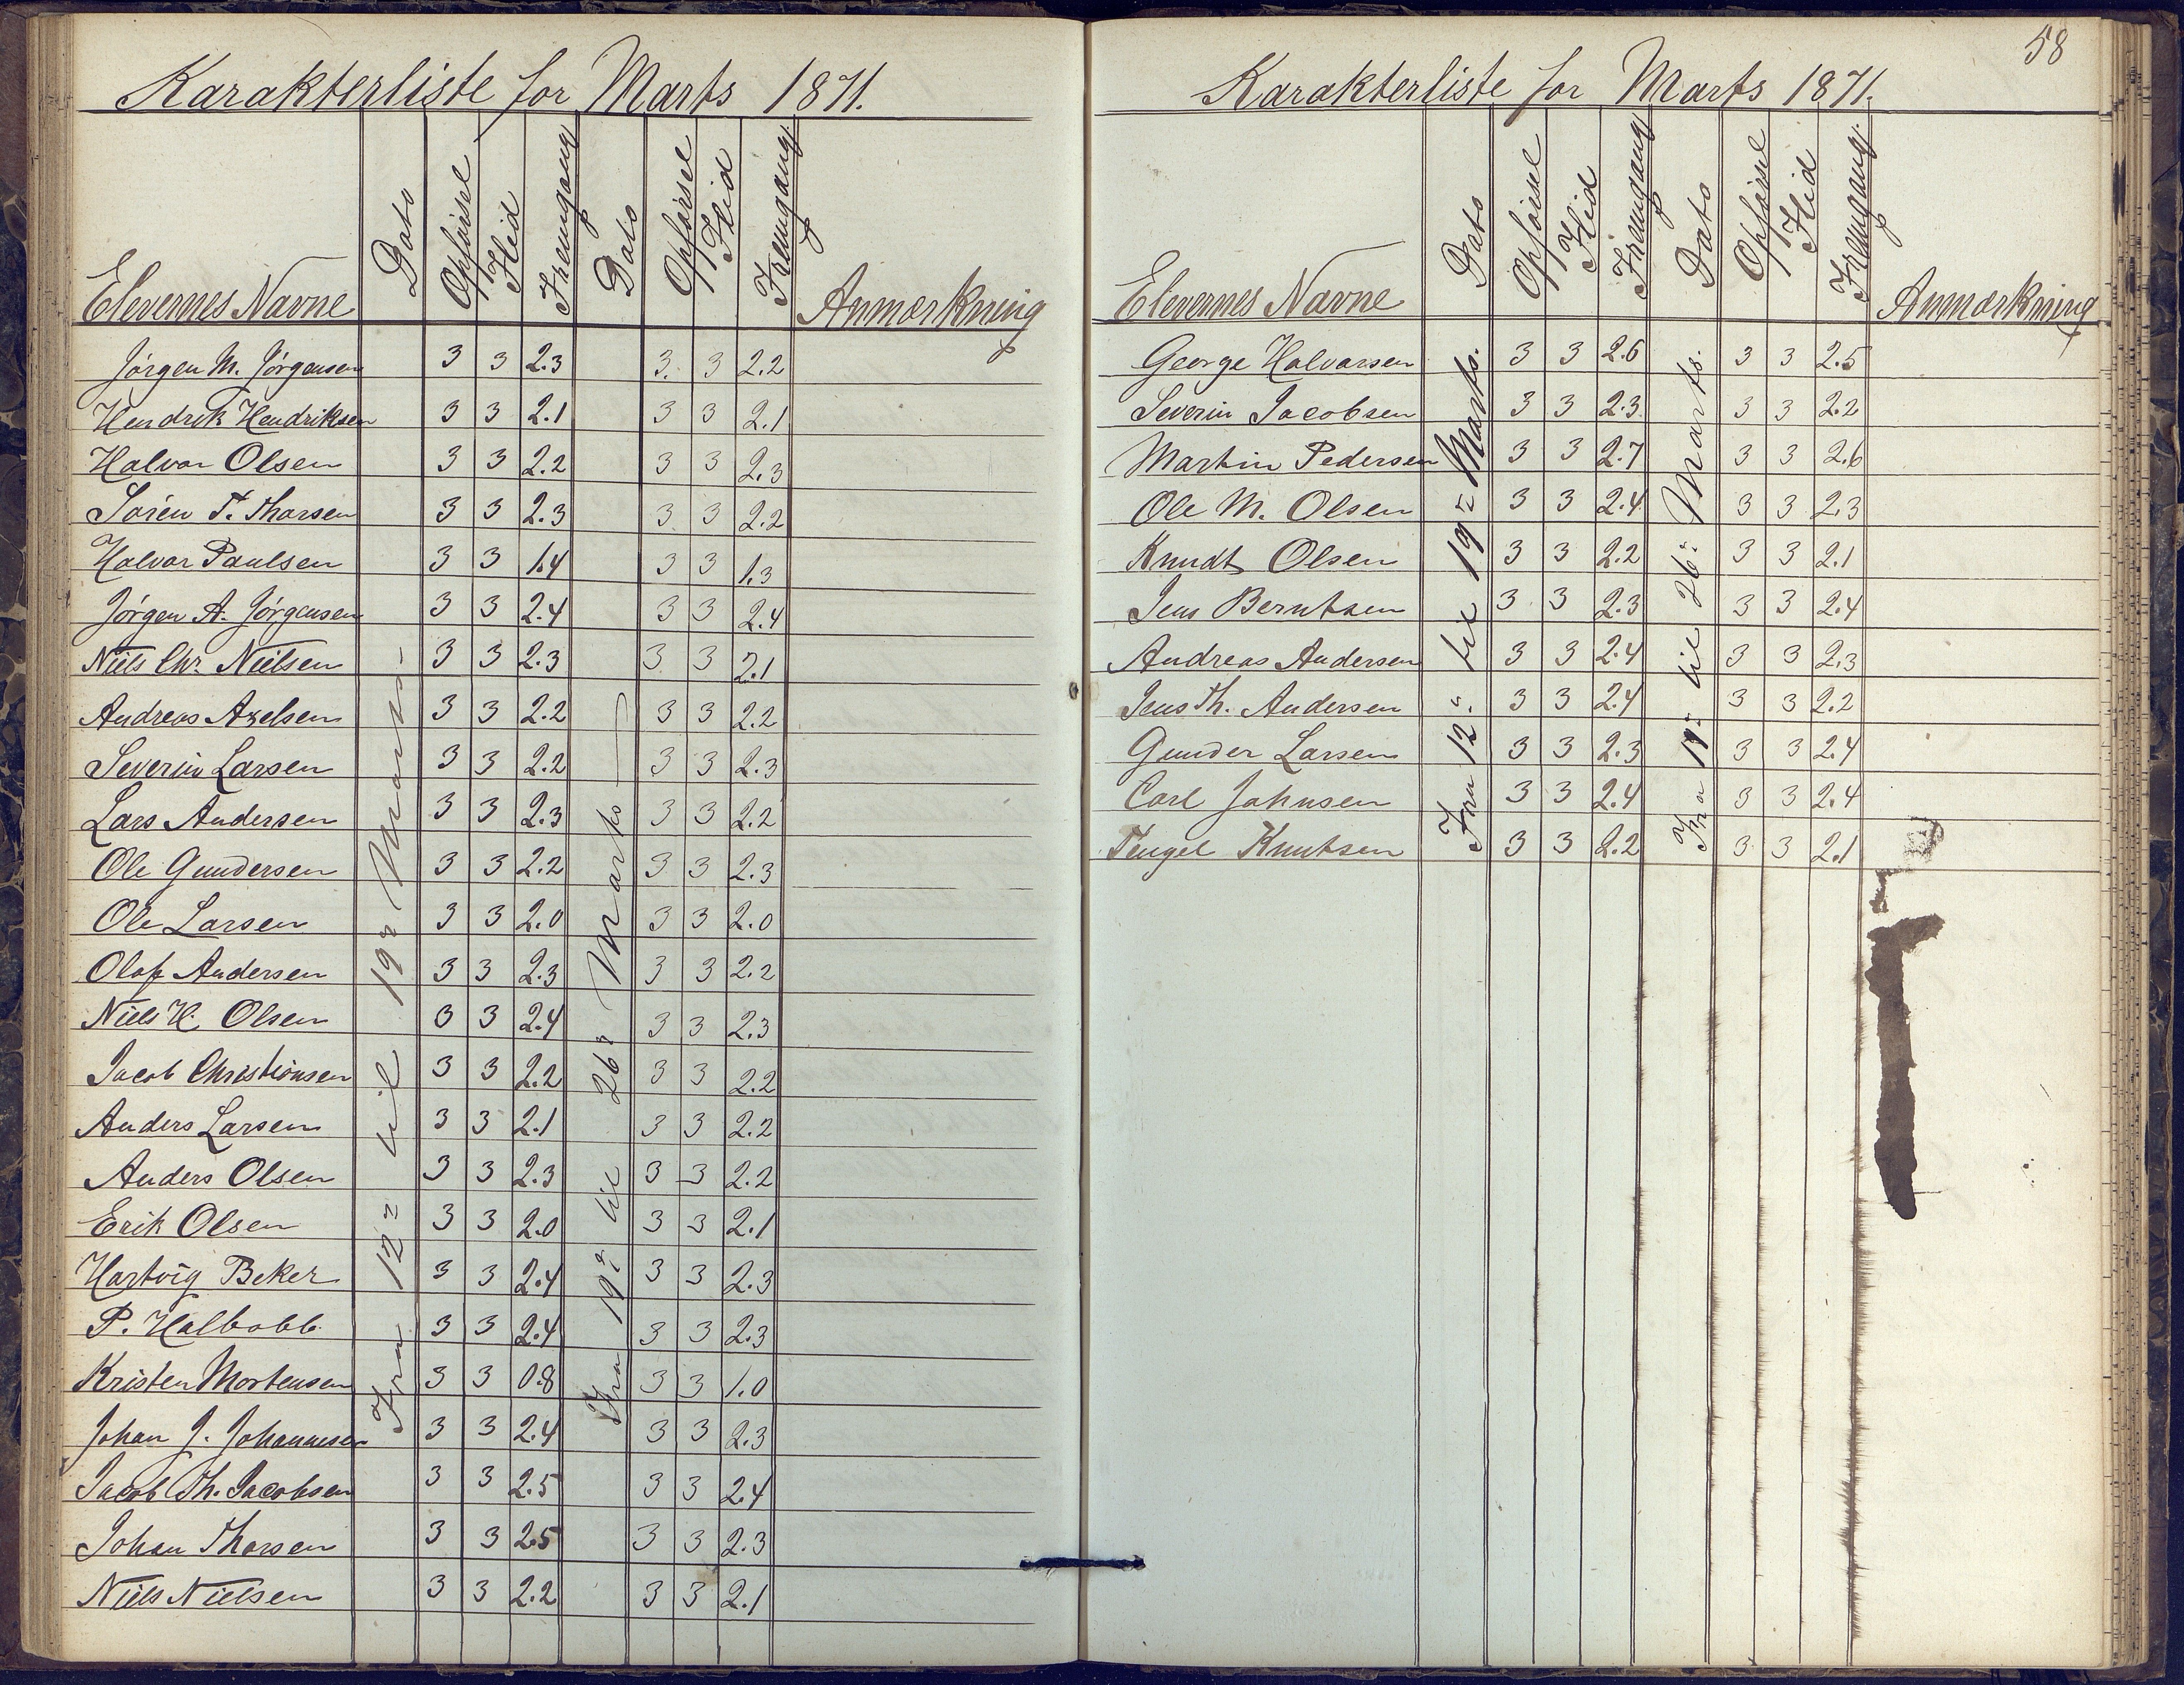 Karakterliste for Marts 1871.
Elevernes Navne Dato Opførsel Flid Fremgang Dato Opførsel Flid Fremgang. Anmærkning
Fra 12te til 19de Marts.
Fra 19de til 26de Marts
Jørgen M. Jørgensen 3 3 2.3 3. 3 2.2
Hendrik Hendriksen 3 3 2.1 3 3 2.1
Halvor Olsen 3 3 2.2 3 3 2.3
Søren T. Thorsen 3 3 2.3 3 3 2.2
Halvor Paulsen 3 3 1.4 3 3 1.3
Jørgen A. Jørgensen 3 3 2.4 3 3 2.4
Niels Chr. Nielsen 3 3 2.3 3 3 2.1
Andreas Axelsen 3 3 2.2 3 3 2.2
Severin Larsen 3 3 2.2 3 3 2.3
Lars Andersen 3 3 2.3 3 3 2.2
Ole Gundersen 3 3 2.2 3 3 2.3
Ole Larsen 3 3 2.0 3 3 2.0
Olaf Andersen 3 3 2.3 3 3 2.2
Niels H. Olsen 3 3 2.4 3 3 2.3
Jacob Christiansen 3 3 2.2 3 3 2.2
Anders Larsen 3 3 2.1 3 3 2.2
Anders Olsen 3 3 2.3 3 3 2.2
Erik Olsen 3 3 2.0 3 3 2.1
Hartvig Beker 3 3 2.4 3 3 2.3
P. Halbobb. 3 3 2.4 3 3 2.3
Kristen Mortensen 3 3 0.8 3 3 1.0
Johan J. Johannesen 3 3 2.4 3 3 2.3
Jacob Th. Jacobsen 3 3 2.5 3 3 2.4
Johan Thorsen 3 3 2.5 3 3 2.3
Niels Nielsen 3 3 2.2 3 3 2.1
58
Karakterliste for Marts 1871.
Elevernes Navne Dato Opførsel Flid Fremgang Dato Opførsel Flid Fremgang. Anmærkning
Fra 12te til 19de Marts.
Fra 19de til 26de Marts.
George Halvorsen 3 3 2.6 3 3 2.5
Severin Jacobsen 3 3 2.3 3 3 2.2
Martin Pedersen 3 3 2.7 3 3 2.6
Ole M. Olsen 3 3 2.4 3 3 2.3
Knudt Olsen 3 3 2.2 3 3 2.1
Jens Berntsen 3 3 2.3 3 3 2.4
Andreas Andersen 3 3 2.4 3 3 2.3
Jens Th. Andersen 3 3 2.4 3 3 2.2
Gunder Larsen 3 3 2.3 3 3 2.4
Carl Johnsen 3 3 2.4 3 3 2.4
Tengel Knutsen 3 3 2.2 3 3 2.1